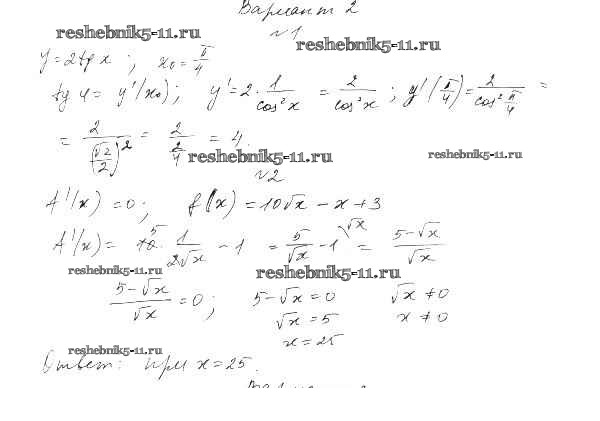 Вариант 2
reshebnik5-11.ru
№1
reshebnik5-11.ru
y = 2tg x ; x₀ = π/4
tg φ = y'(x₀) ; y' = 2 · 1/cos²x = 2/cos²x ; y'(π/4) = 2/cos² π/4 =
= 2/(√2/2)² = 2/(2/4) = 4.
reshebnik5-11.ru
reshebnik5-11.ru
№2
f'(x) = 0 ; f(x) = 10√x − x + 3
f'(x) = 10 ⁵ · 1/2√x − 1 = 5/√x − 1 \√x = 5−√x/√x
reshebnik5-11.ru
reshebnik5-11.ru
5−√x/√x = 0 ; 5−√x = 0 √x ≠ 0
√x = 5 x ≠ 0
x = 25
reshebnik5-11.ru
Ответ: при x = 25.